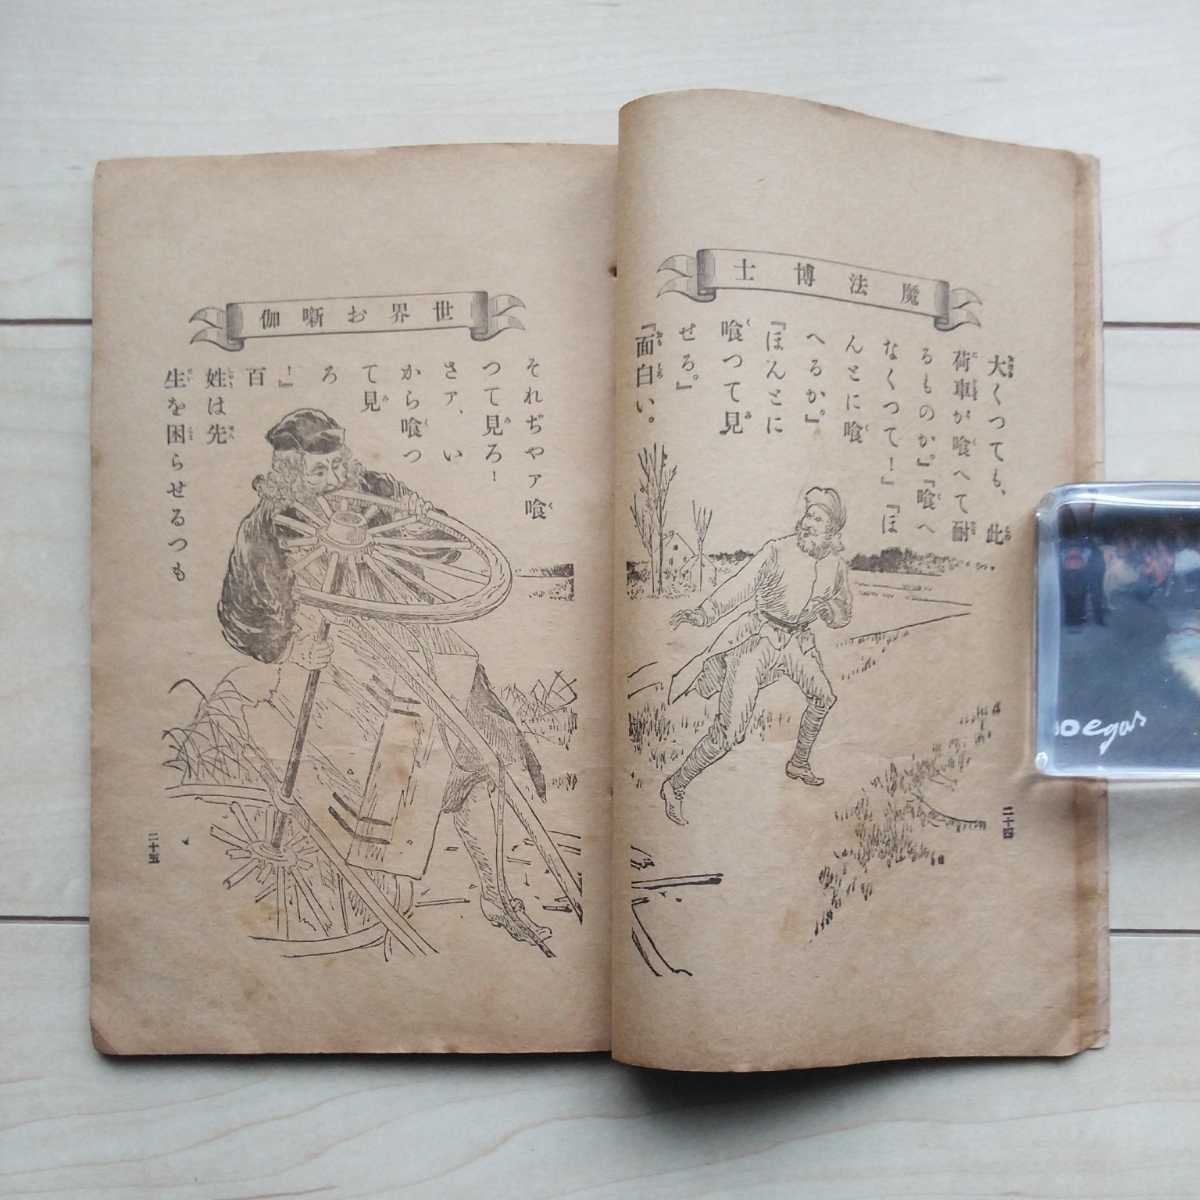 魔法博士
大くつても、此
荷車が喰へて耐
るものか。』『喰へ
なくつて！』『ほ
んとに喰
へるか。』
『ほんとに
喰つて見
せろ。』
『面白い。
二十四
世界お噺伽
それぢやァ喰
つて見ろ！
さァ、い
から喰つ
て見
ろ
！』
百
姓は先
生を困らせるつも
二十五
oegar